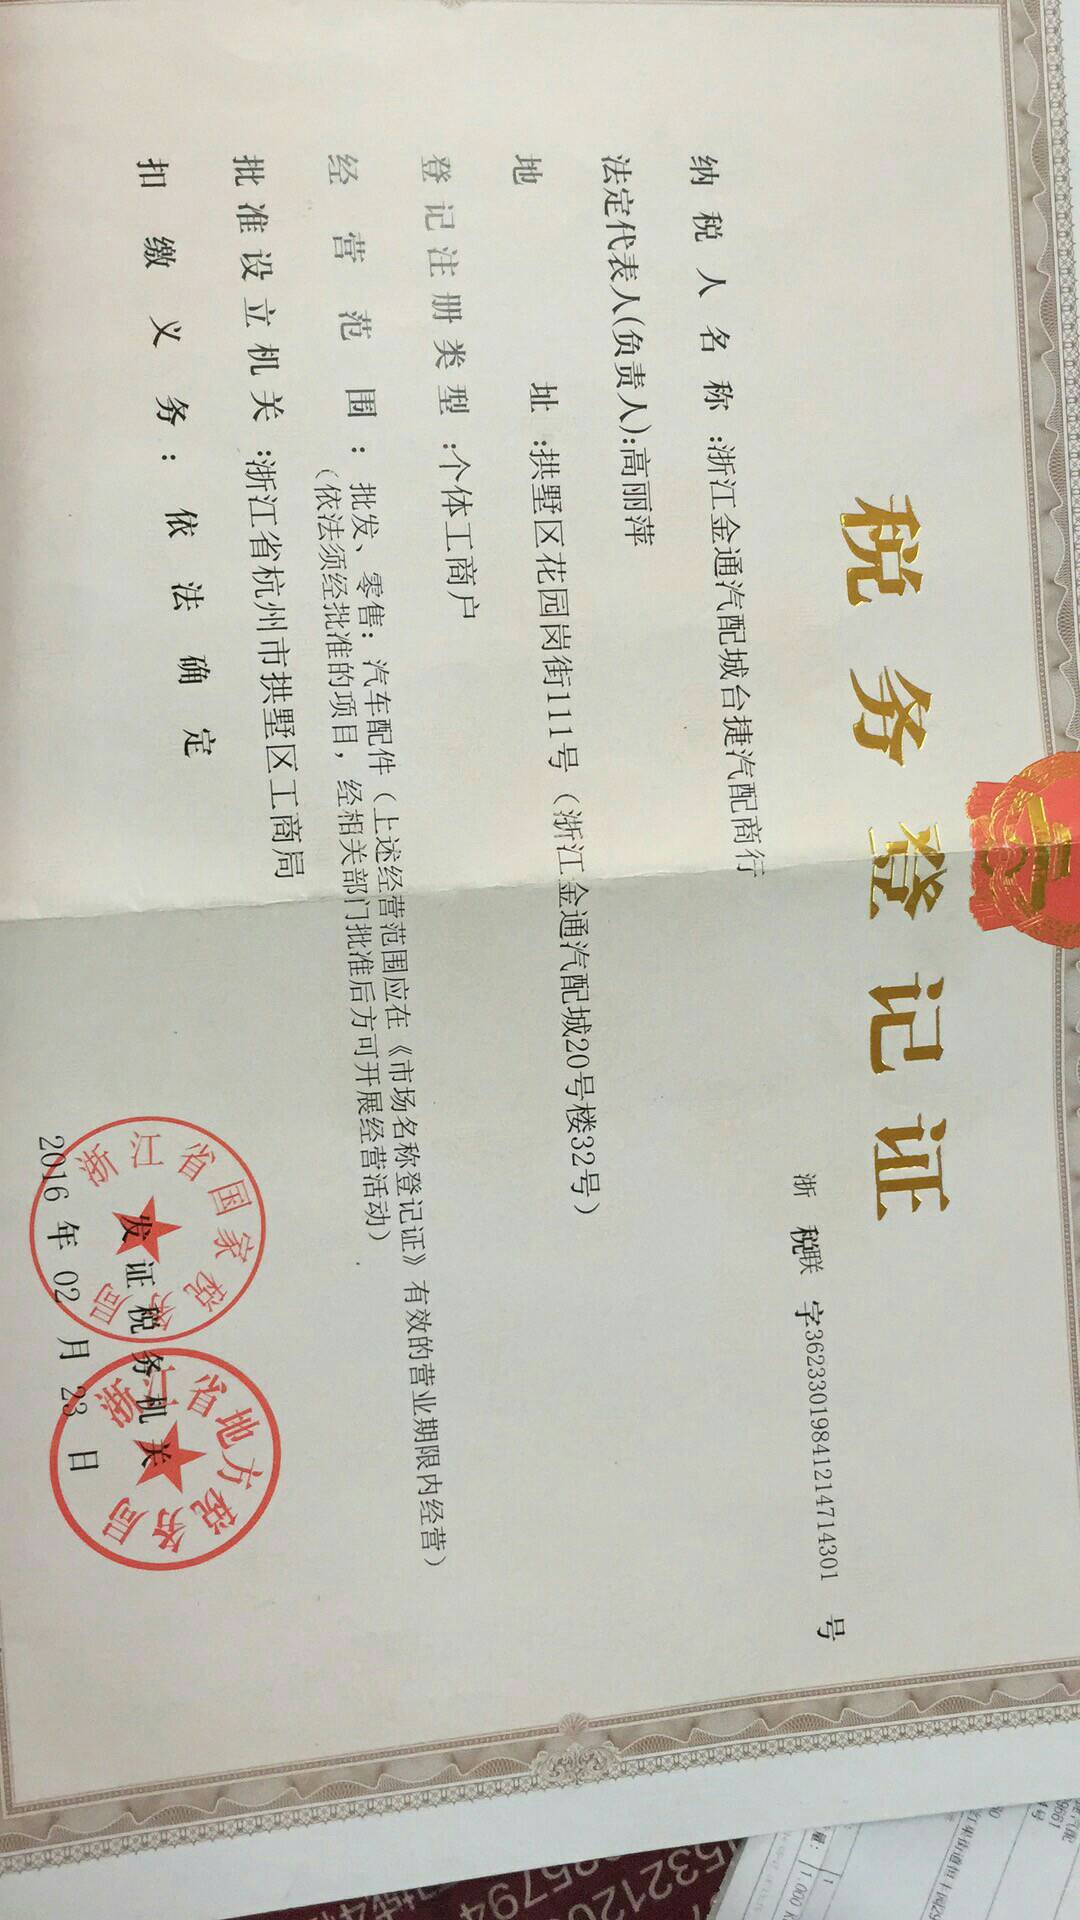 税务登记证
浙 税联 字36233019841214714301 号
纳税人名称:浙江金通汽配城台捷汽配商行
法定代表人(负责人):高丽萍
地址:拱墅区花园岗街111号(浙江金通汽配城20号楼32号)
登记注册类型:个体工商户
经营范围:批发、零售:汽车配件(上述经营范围应在《市场名称登记证》有效的营业期限内经营)
(依法须经批准的项目,经相关部门批准后方可开展经营活动)
批准设立机关:浙江省杭州市拱墅区工商局
扣缴义务:依法确定
浙江省国家税务局
浙江省地方税务局
发证税务机关
2016年02月23日